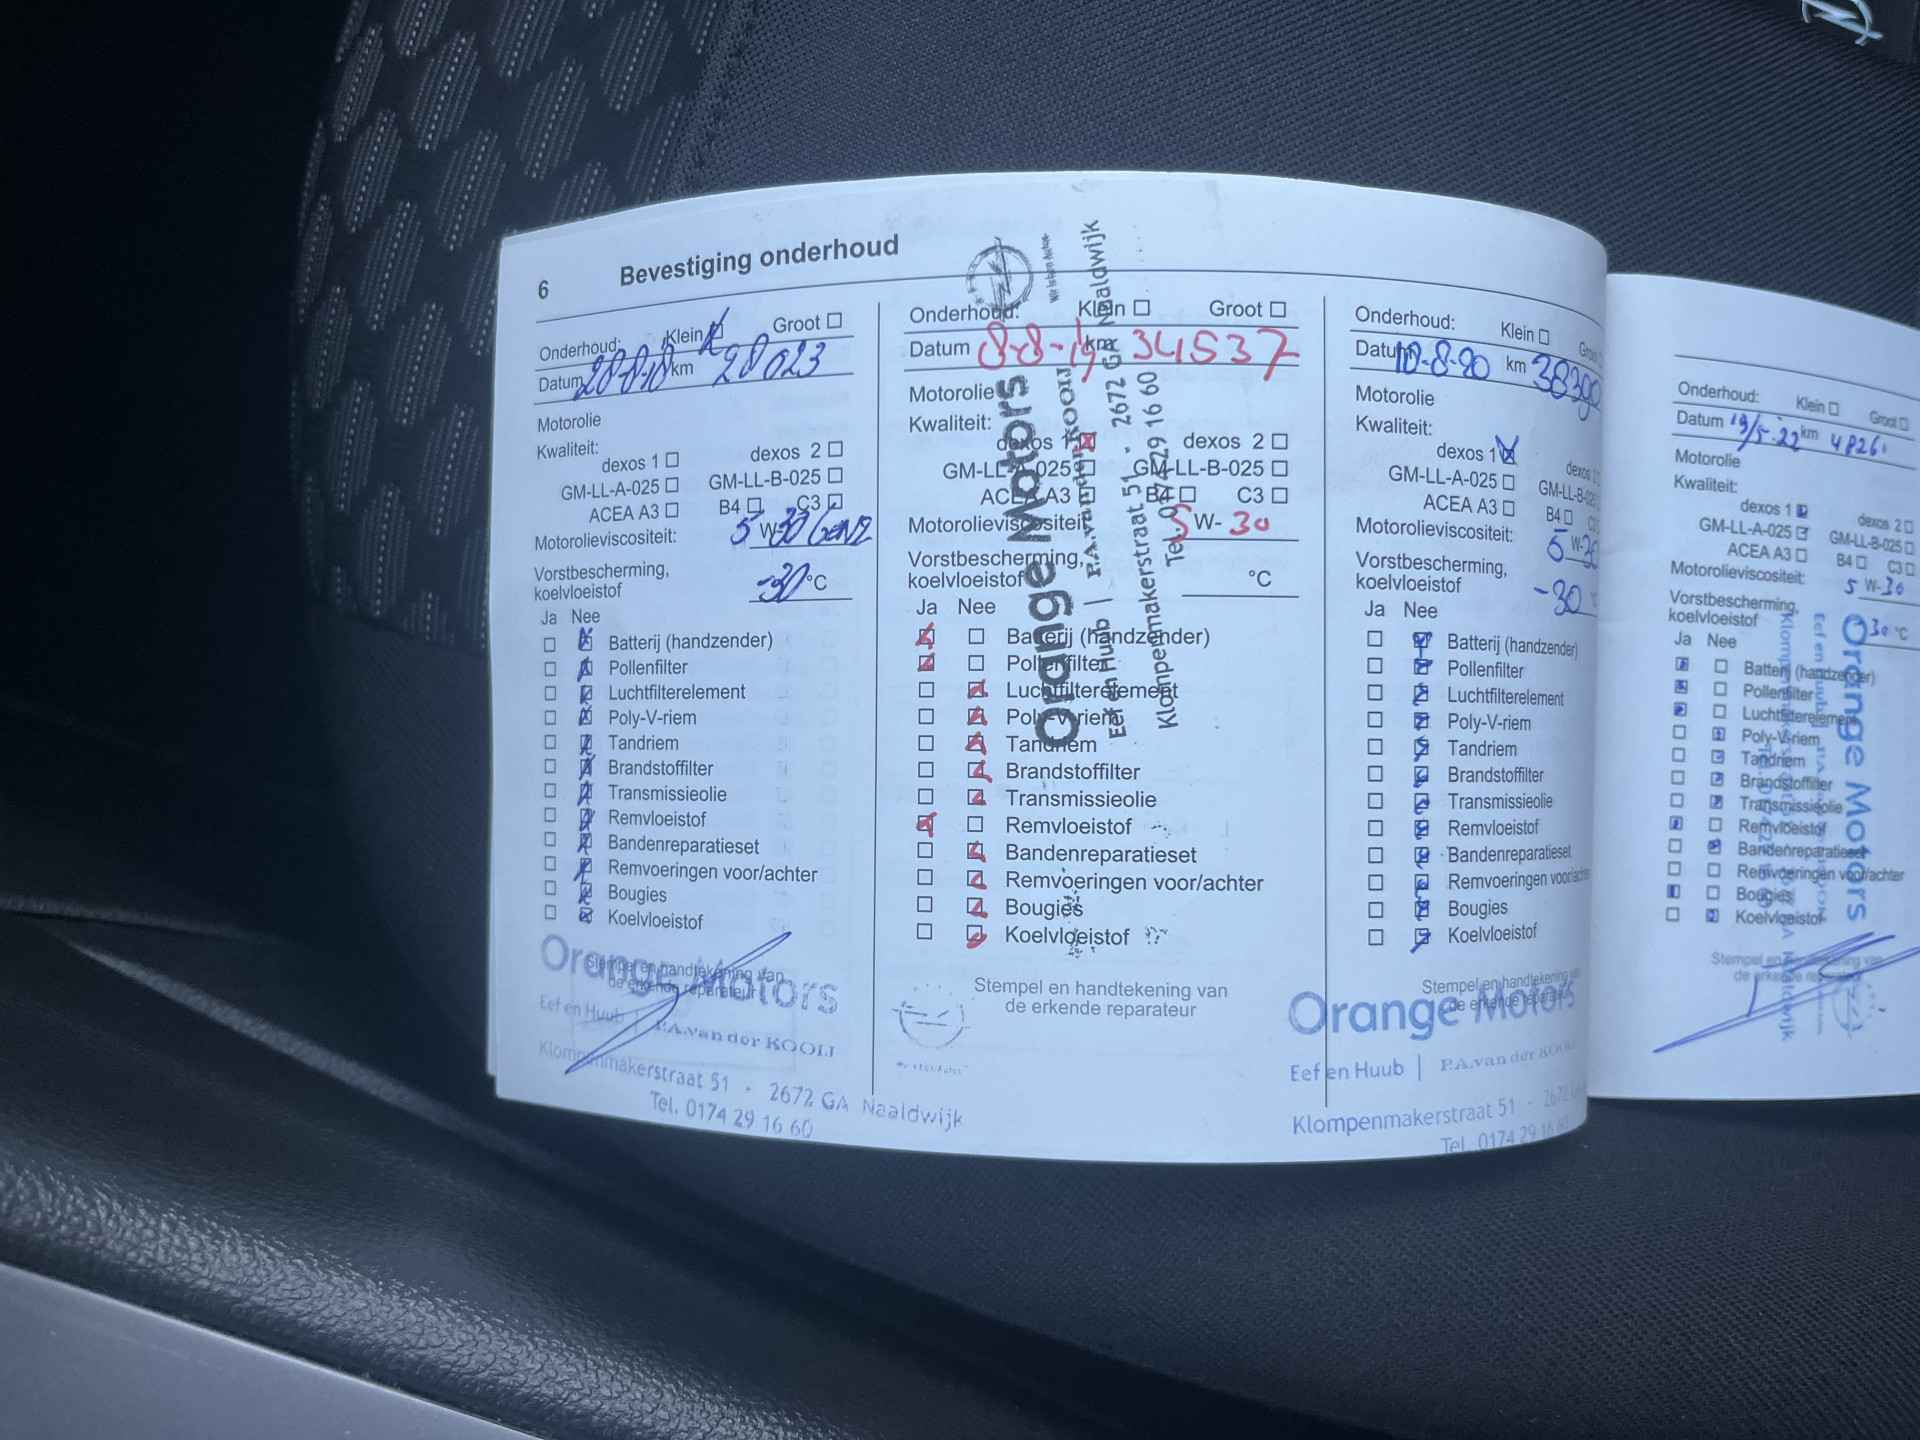 6 Bevestiging onderhoud
Onderhoud: Klein Groot
Datum 28-8-18 km 28023
Motorolie
Kwaliteit:
dexos 1 dexos 2
GM-LL-A-025 GM-LL-B-025
ACEA A3 B4 C3
Motorolieviscositeit: 5 W 30 GEN2
Vorstbescherming,
koelvloeistof -30 °C
Ja Nee
Batterij (handzender)
Pollenfilter
Luchtfilterelement
Poly-V-riem
Tandriem
Brandstoffilter
Transmissieolie
Remvloeistof
Bandenreparatieset
Remvoeringen voor/achter
Bougies
Koelvloeistof
Stempel en handtekening van
de erkende reparateur
Orange Motors
Eef en Huub | P.A.van der KOOIJ
Klompenmakerstraat 51 - 2672 GA Naaldwijk
Tel. 0174 29 16 60
Onderhoud: Klein Groot
Datum 8-8-19 km 34537
Motorolie
Kwaliteit:
dexos 1 dexos 2
GM-LL-A-025 GM-LL-B-025
ACEA A3 B4 C3
Motorolieviscositeit: 5 W- 30
Vorstbescherming,
koelvloeistof °C
Ja Nee
Batterij (handzender)
Pollenfilter
Luchtfilterelement
Poly-V-riem
Tandriem
Brandstoffilter
Transmissieolie
Remvloeistof
Bandenreparatieset
Remvoeringen voor/achter
Bougies
Koelvloeistof
Stempel en handtekening van
de erkende reparateur
Orange Motors
Eef en Huub | P.A.van der KOOIJ
Klompenmakerstraat 51 - 2672 GA Naaldwijk
Tel. 0174 29 16 60
Onderhoud: Klein Groot
Datum 10-8-20 km 38390
Motorolie
Kwaliteit:
dexos 1 dexos
GM-LL-A-025 GM-LL-B-025
ACEA A3 B4
Motorolieviscositeit: 5 W-30
Vorstbescherming,
koelvloeistof -30
Ja Nee
Batterij (handzender)
Pollenfilter
Luchtfilterelement
Poly-V-riem
Tandriem
Brandstoffilter
Transmissieolie
Remvloeistof
Bandenreparatieset
Remvoeringen voor/achter
Bougies
Koelvloeistof
Stempel en handtekening van
de erkende reparateur
Orange Motors
Eef en Huub | P.A.van der KOOIJ
Klompenmakerstraat 51 - 2672
Tel. 0174 29 16
Onderhoud: Klein Groot
Datum 19/5-22 km 48261
Motorolie
Kwaliteit:
dexos 1 dexos 2
GM-LL-A-025 GM-LL-B-025
ACEA A3 B4 C3
Motorolieviscositeit: 5 W-30
Vorstbescherming,
koelvloeistof 30 °C
Ja Nee
Batterij (handzender)
Pollenfilter
Luchtfilterelement
Poly-V-riem
Tandriem
Brandstoffilter
Transmissieolie
Remvloeistof
Bandenreparatieset
Remvoeringen voor/achter
Bougies
Koelvloeistof
Stempel en handtekening van
de erkende reparateur
Orange Motors
Eef en Huub